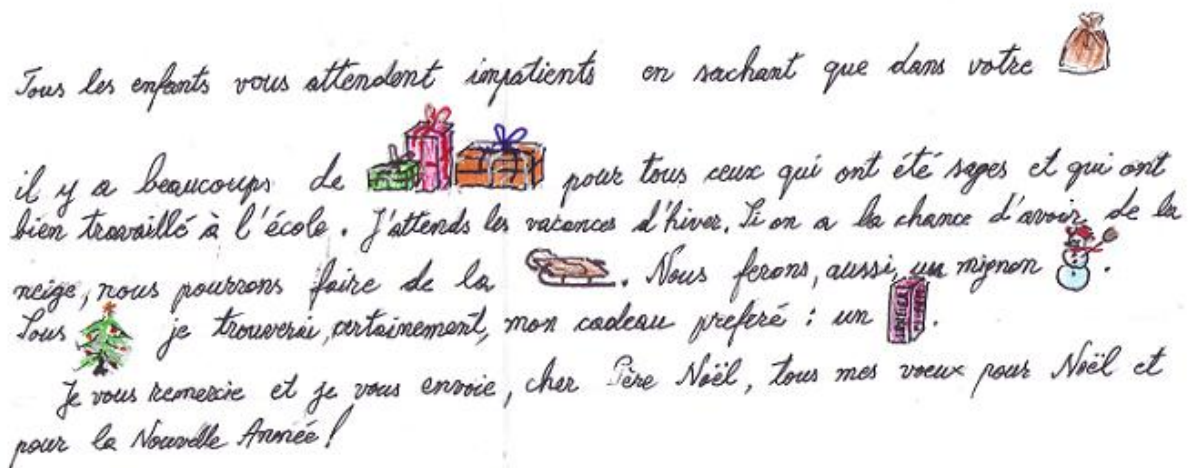 Tous les enfants vous attendent impatients en sachant que dans votre
il y a beaucoups de pour tous ceux qui ont été sages et qui ont
bien travaillé à l'école. J'attends les vacances d'hiver. Si on a la chance d'avoir de la
neige, nous pourrons faire de la . Nous ferons, aussi, un mignon .
Sous je trouverai, certainement, mon cadeau preferé : un .
Je vous remercie et je vous envoie, cher Père Noël, tous mes voeux pour Noël et
pour la Nouvelle Année !